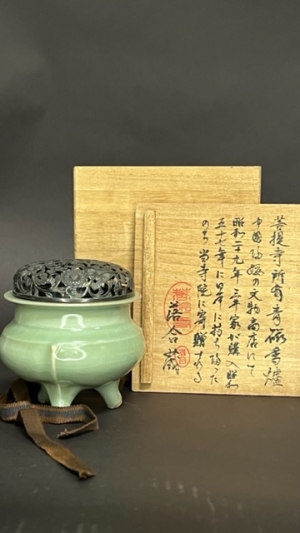 菩提寺所有青磁香爐
中国の文物商店にて
昭和九年 家が購入昭和
五十七年に日本に持ち帰った
のち当寺院に寄贈される
落合蔵